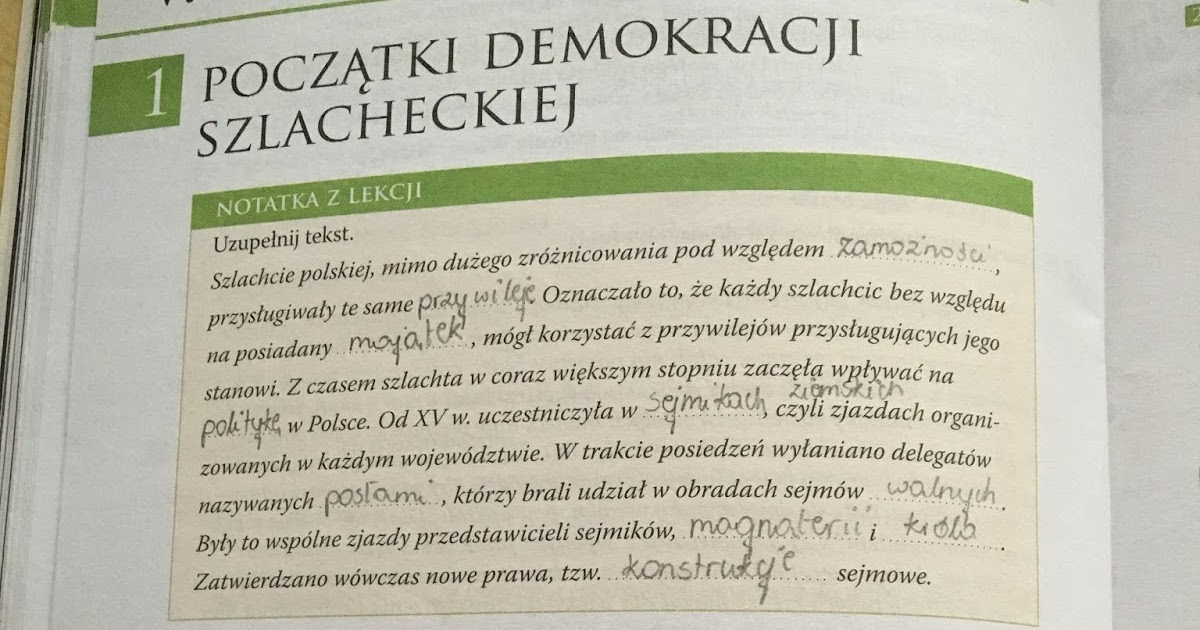 1 POCZĄTKI DEMOKRACJI
SZLACHECKIEJ
NOTATKA Z LEKCJI
Uzupełnij tekst.
Szlachcie polskiej, mimo dużego zróżnicowania pod względem zamożności,
przysługiwały te same przywileje Oznaczało to, że każdy szlachcic bez względu
na posiadany majątek, mógł korzystać z przywilejów przysługujących jego
stanowi. Z czasem szlachta w coraz większym stopniu zaczęła wpływać na
politykę w Polsce. Od XV w. uczestniczyła w sejmikach ziemskich, czyli zjazdach organi-
zowanych w każdym województwie. W trakcie posiedzeń wyłaniano delegatów
nazywanych posłami, którzy brali udział w obradach sejmów walnych.
Były to wspólne zjazdy przedstawicieli sejmików, magnaterii i króla.
Zatwierdzano wówczas nowe prawa, tzw. konstrukcje sejmowe.